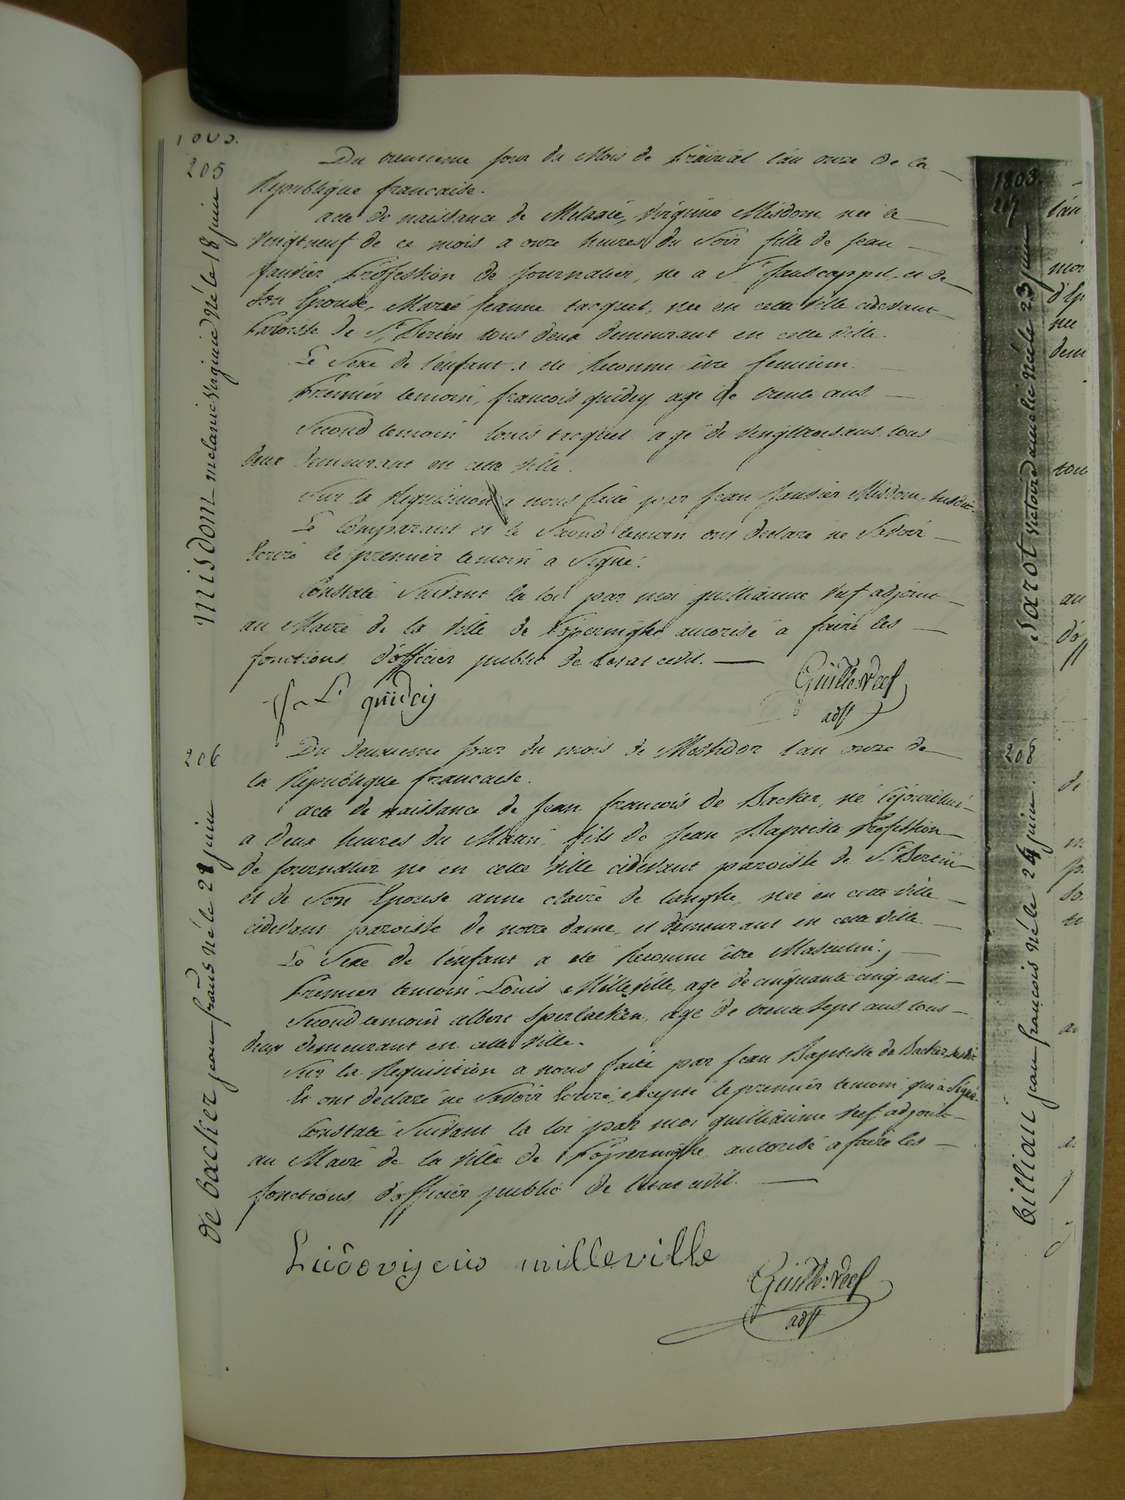 205
Du trentieme jour du Mois de Prairial l'an onze de la
Republique francaise.
acte de naissance de Melanie, Virginie Misdom née le
Vingt neuf de ce mois a onze heures du Soir fille de Jean
Proffession de Journalier, né a St jans cappel, et de
Son Epouse, Marie Jeanne née en cette ville cidevant
Paroisse de St Bertin tous deux demeurant en cette ville.
Le Sexe de l'enfant a eté Reconnu être feminin.
Premier temoin, francois quidey age de trente ans
Second temoin louis age de Vingttrois ans tous
deux demeurant en cette Ville.
Sur la Requisition a nous faite par Jean Misdom
Le Comparant et le Second temoin ont declaré ne Savoir
Ecrire le premier temoin a Signé.
Constaté Suivant la loi par moi guilliaume Vef adjoint
au Maire de la Ville de Poperinghe autorisé a faire les
fonctions d'officier public de l'etat civil.
quidey
Guille. Veef
adjt
misdom melanie virginie né le 18 juin
206
Du deuxieme jour du mois de Messidor l'an onze de
la Republique francaise.
acte de naissance de Jean francois de Backer, né
a deux heures du Matin fils de Jean Baptiste Profession
de Journalier né en cette Ville cidevant paroisse de St Bertin
et de Son Epouse anne claire de née en cette ville
cidevant paroisse de notre dame, et demeurant en cette ville
Le Sexe de l'enfant a eté Reconnu être Masculin.
Premier temoin Louis Milleville, age de cinquante cinq ans,
Second temoin albert age de trente sept ans tous
deux demeurant en cette Ville.
Sur la Requisition a nous faite par Jean Baptiste de Backer
Et ont declaré ne Savoir Ecrire, excepté le premier temoin qui a Signé.
Constaté Suivant la loi par moi guilliaume Vef adjoint
au Maire de la Ville de Poperinghe autorisé a faire les
fonctions d'officier public de l'etat civil.
Ludovijcus milleville
Guille. Veef
adjt
de backer jean frans né le 21 juin
1803.
207
l'an
née
dem
sarot victoire né le 23 juin
208
billiau jean francois né le 24 juin.